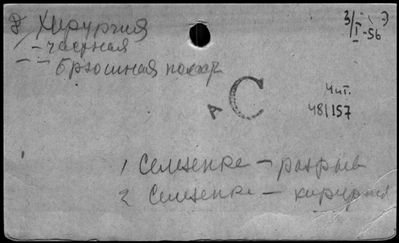 8/ Хирургия
3/I-56 Э
— частная
— — брюшная полость
А С
Чит.
48/157
1 Семзенке — разрыв
2 Семзенке — хирургия